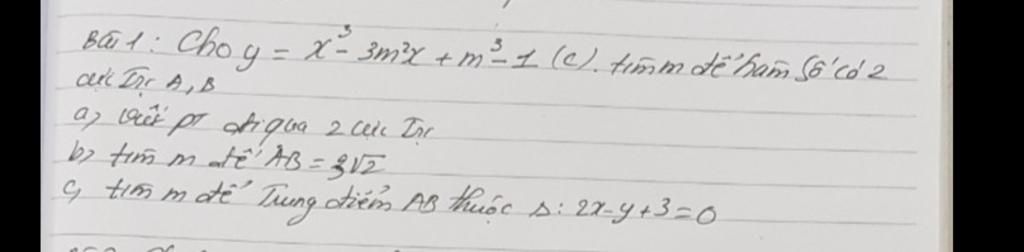 Bài 1: Cho y = x³ - 3m²x + m³ - 1 (C). tìm m để hàm số có 2
cực Trị A, B
a) viết pt đi qua 2 cực Trị
b) tìm m để AB = 3√2
c) tìm m để Trung điểm AB thuộc Δ: 2x - y + 3 = 0